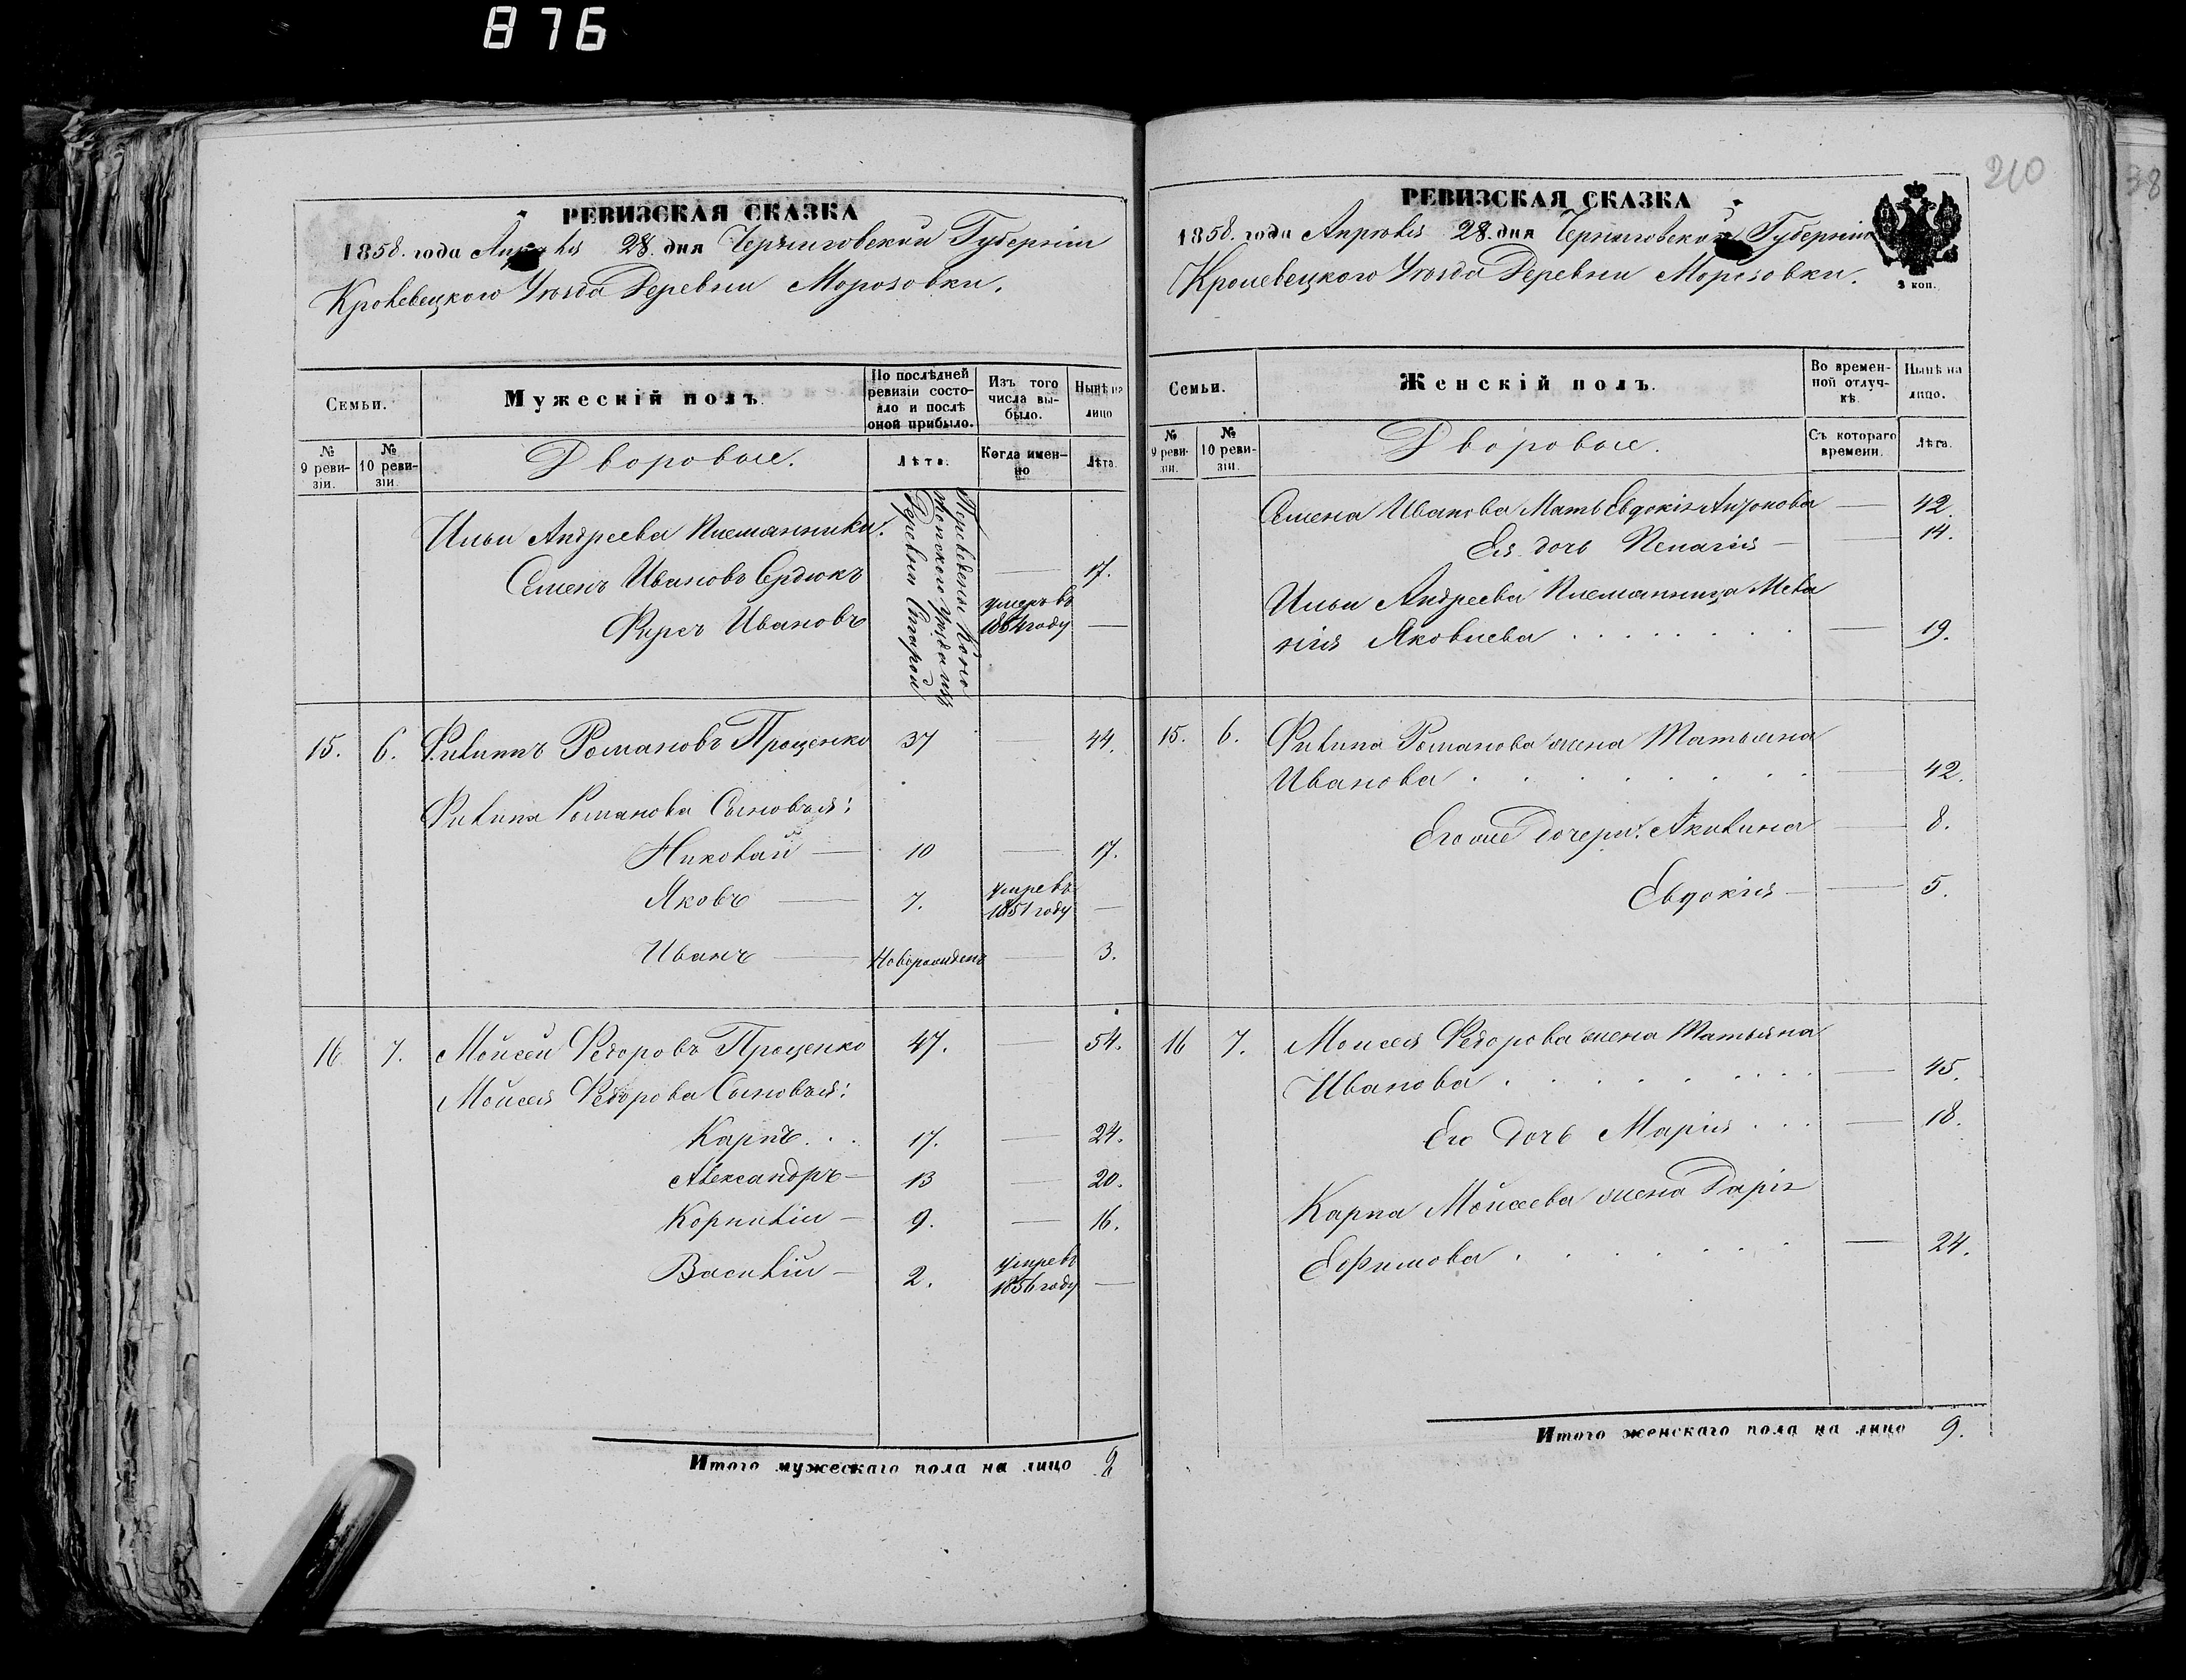 876
РЕВИЗСКАЯ СКАЗКА
1858. года Апрѣля 28. дня Черниговской Губерніи
Кролевецкого Уѣзда Деревни Морозовки.
Семьи.
Мужескій полъ.
По послѣдней ревизіи состояло и послѣ оной прибыло.
Изъ того числа выбыло.
Нынѣ на лицо
№ 9 ревизіи.
№ 10 ревизіи.
Дворовые.
Лѣта.
Когда именно
Лѣта.
Ильи Андреева племянники:
Семенъ Ивановъ Сердюкъ — 17.
Фирсъ Ивановъ умеръ въ 1854 году —
Переведены Коно
топского Уѣзда изъ
Деревни Старой
15. 6. Филиппъ Романовъ Проценко 37 — 44.
Филипа Романова Сыновья:
Николай — 10 — 17.
Яковъ — 7. умре въ 1851 году —
Иванъ — Новорожденъ — 3.
16 7. Моисей Федоровъ Проценко 47. — 54.
Моисея Федорова Сыновья:
Карпъ . . 17. — 24.
Александръ — 13 — 20.
Корнилій — 9. — 16.
Василій — 2. умре въ 1856 году —
Итого мужескаго пола на лицо 9
210
38
РЕВИЗСКАЯ СКАЗКА
1858. года Апрѣля 28. дня Черниговской Губерніи
Кролевецкого Уѣзда Деревни Морозовки.
3 коп.
Семьи.
Женскій полъ.
Во временной отлучкѣ.
Нынѣ на лицо.
№ 9 ревизіи.
№ 10 ревизіи.
Дворовые.
Съ котораго времени.
Лѣта.
Семена Иванова Мать Евдокія Антонова — 42.
Ея дочь Пелагія — 14.
Ильи Андреева племянница Мела
нія Яковлева . . . . . . . . — 19.
15. 6. Филипа Романова жена Татьяна
Иванова . . . . . . . . — 42.
Его же Дочери: Акилина — 8.
Евдокія — 5.
16 7. Моисея Федорова жена Татьяна
Иванова . . . . . . . . — 45.
Его дочь Марія . . . — 18.
Карпа Моисеева жена Дарія
Ефимова . . . . . . . — 24.
Итого женскаго пола на лицо 9.